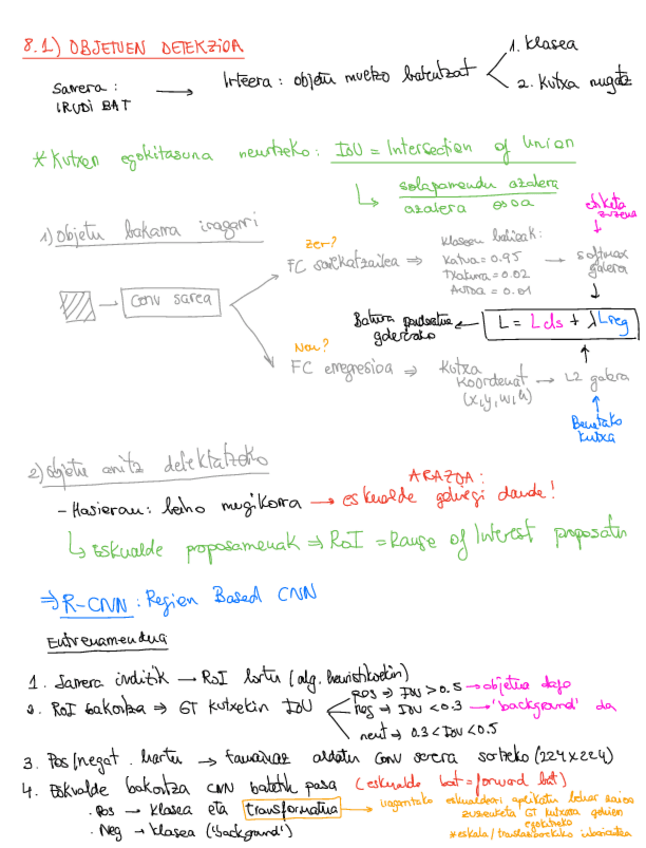 8.1) OBJETUEN DETEKZIOA
Sarrera : IRUDI BAT → Irteera : objetu multzo batentzat
1. klasea
2. kutxa mugatz
* Kutxen egokitasuna neurtzeko : IoU = Intersection of Union
solapamendu azalera
azalera osoa
1) Objetu bakarra iragarri
etiketa zuzena
zer?
FC sailkatzailea ⇒
klaseen balioak :
Katua = 0.95
Txakurra = 0.02
Autoa = 0.01
→ softmax galera
Conv sarea
Batura ponderatua galerako
L = Lcls + λLreg
Non?
FC erregresioa ⇒ Kutxa koordenat (x,y,w,h) → L2 galera
Benetako kutxa
2) Objetu anitz detektatzeko
ARAZOA :
- Hasieran : leiho mugikorra → eskualde gehiegi daude!
↳ Eskualde proposamenak ⇒ RoI = Range of Interest proposatu
⇒ R-CNN : Region Based CNN
Entrenamendua
1. Sarrera iruditik → RoI lortu (alg. heuristikoekin)
2. RoI bakoitza ⇒ GT kutxekin IoU
pos ⇒ IoU > 0.5 → objetua dago
neg ⇒ IoU < 0.3 → 'background' da
neut ⇒ 0.3 < IoU < 0.5
3. Pos/negat. hartu → tamainaz aldatu conv sarera sartzeko (224x224)
4. Eskualde bakoitza CNN batetik pasa (eskualde bat = forward bat)
· Pos → klasea eta transformatua →
eskualdeari aplikatu behar zaion
zuzenketa GT kutxara gehien
egokitzeko
* eskala/
· Neg → klasea ('background')